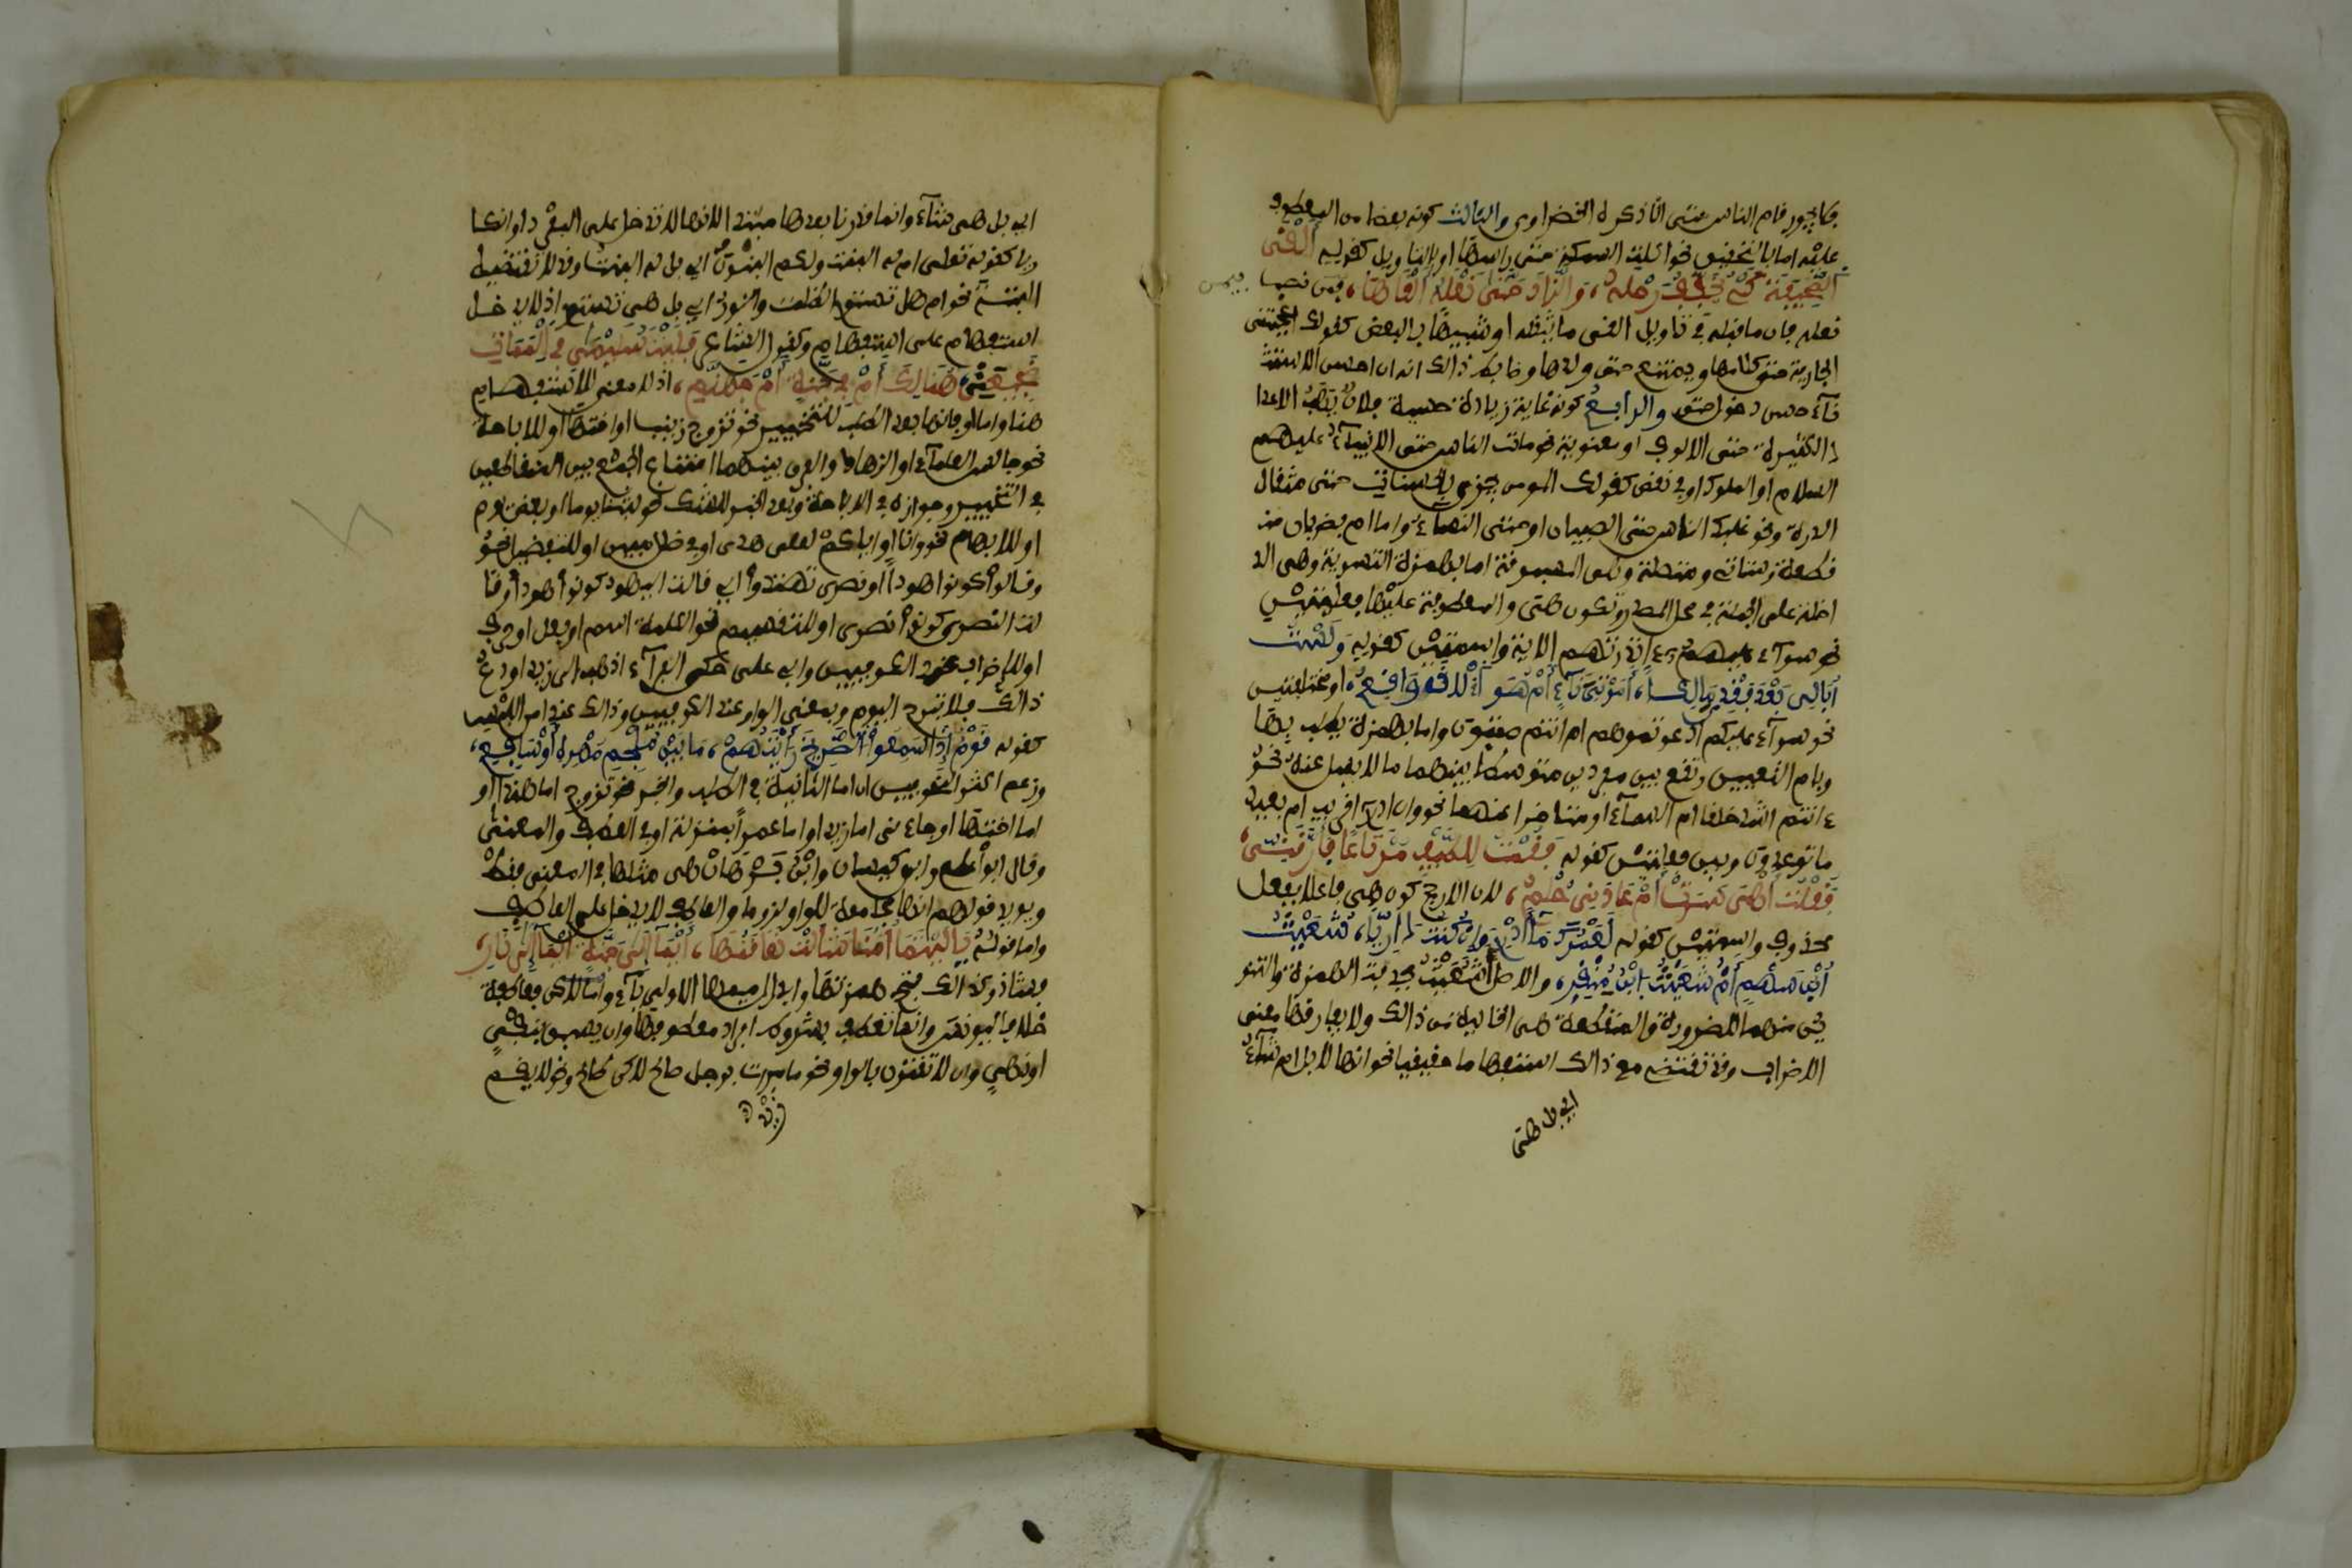 فلا يجوز قام الناس حتى انا ذكره الخضراوي والثالث كونه بعضا من المعطوف
عليه اما بالتحقيق نحو اكلت السمكة حتى راسها او بالتاويل كقوله أَلْقَى
الصَّحِيفَةَ كَيْ يُخَفِّفَ رَحْلَهُ، وَالزَّادَ حَتَّى نَعْلَهُ أَلْقَاهَا، فيمن نصب
نعله فان ما قبله في تاويل القى ما يثقله او شبيها بالبعض كقولك اعجبتني
الجارية حتى كلامها ويمتنع حتى ولدها وضابط ذالك انه ان احسن الاستثـ
ـناء حسن دخول حتى والرابع كونه غاية في زيادة حسية فلان يهب الاعدا
د الكثيرة حتى الالوف او معنوية نحو مات الناس حتى الانبياء عليهم
السلام او الملوك او في نقص كقولك المومن يجزى بالحسنات حتى مثقال
الذرة ونحو غلبك الناس حتى الصبيان او حتى النساء واما ام فضربان منـ
ـقطعة وستاتي ومتصلة وهي المسبوقة اما بهمزة التسوية وهي الد
اخلة على الجملة في محل المصدر وتكون هي والمعطوفة عليها فعليتين
نحو سواء عليهم ءانذرتهم الاية واسميتين كقوله وَلَسْتُ
أُبَالِي بَعْدَ فَقْدِي مَالِكاً، أَمَوْتِي نَاءٍ أَمْ هُوَ الآنَ وَاقِعُ، او مختلفتين
نحو سواء عليكم ادعوتموهم ام انتم صمتون واما بهمزة يطلب بها
وبام التعيين وتقع بين مفردين متوسط بينهما ما لا يسل عنه نحو
ء انتم اشد خلقا ام السماء او متاخرا عنهما نحو وان ادري اقريب ام بعيد
ما توعدون وبين فعليتين كقوله فَقُمْتُ لِلطَّيْفِ مُرْتَاعًا فَأَرَّقَنِي،
فَقُلْتُ أَهْيَ سَرَتْ أَمْ عَادَنِي حُلُمٌ، لان الارجح كون هي فاعلا بفعل
محذوف واسميتين كقوله لَعَمْرُكَ مَا أَدْرِي وَإِنْ كُنْتُ دَارِيّاً، شُعَيْثُ
ابْنُ سَهْمٍ أَمْ شُعَيْثُ ابْنُ مِنْقَرِ، والاصل أشعيث فحذفت الهمزة والتنو
ين منهما للضرورة والمنقطعة هي الخالية من ذالك ولا يفارقها معنى
الاضراب وقد تقتضي مع ذالك استفهاما حقيقيا نحو انها لابل ام شاء
اي بل هي
اي بل هي شاء وانما قدرنا بعدها مبتدا لانها لا تدخل على المفرد او انكا
ريا كقوله تعلى ام له البنت ولكم البنون اي بل اله البنت وقد لا تقتضيه
البتة نحو ام هل تستوي الظلمت والنور اي بل هل تستوي اذ لا يدخل
استفهام على استفهام وكقول الشاعر فَلَيْتَ سُلَيْمَى فِي الْمَمَاتِ
ضَجِيعَتِي، هُنَالِكَ أَمْ فِي جَنَّةٍ أَمْ جَهَنَّمِ، اذ لا معنى للاستفهام
هنا واما او فانها بعد الطلب للتخيير نحو تزوج زينب او اختها او للاباحة
نحو جالس العلماء او الزهاد والفرق بينهما امتناع الجمع بين المتعاطفين
في التخيير وجوازه في الاباحة وبعد الخبر للشك نحو لبثنا يوما او بعض يوم
او للابهام نحو وانا او اياكم لعلى هدى او في ظلل مبين او للتفصيل نحو
وقالوا كونوا هودا او نصرى تهتدوا اي قالت اليهود كونوا هودا وقا
لت النصرى كونوا نصرى او للتقسيم نحو الكلمة اسم او فعل او حرف
او للاضراب عند الكوفيين وابي علي حكى الفراء اذهب الى زيد او دع
ذالك فلا تبرح اليوم وبمعنى الواو عند الكوفيين وذالك عند امن اللبس
كقوله قَوْمٌ إِذَا سَمِعُوا الصَّرِيخَ رَأَيْتَهُمْ، مَا بَيْنَ مُلْجِمِ مُهْرِهِ أَوْ سَافِعِ،
وزعم اكثر النحويين ان اما الثانية في الطلب والخبر نحو تزوج اما هندا او
اما اختها او جاءني اما زيد او اما عمرا بمنزلة او في العطف والمعنى
وقال ابو علي وابن كيسان وابن برهان هي مثلها في المعنى فقط
ويويد قولهم انها مجامعة للواو لزوما والعاطف لا يدخل على العاطف
واما قوله يَا لَيْتَمَا أُمَّنَا شَالَتْ نَعَامَتُهَا، أَيْمَا إِلَى جَنَّةٍ أَيْمَا إِلَى نَارِ،
فشاذ وكذالك فتح همزتها وابدال ميمها الاولى ياء واما لاكن فعاطفة
خلافا ليونس وانما تعطف بشروط افراد معطوفها وان يسبق بنفي
او نهي وان لا تقترن بالواو نحو ما مررت برجل صالح لاكن طالح ونحو لا يقم
زيد